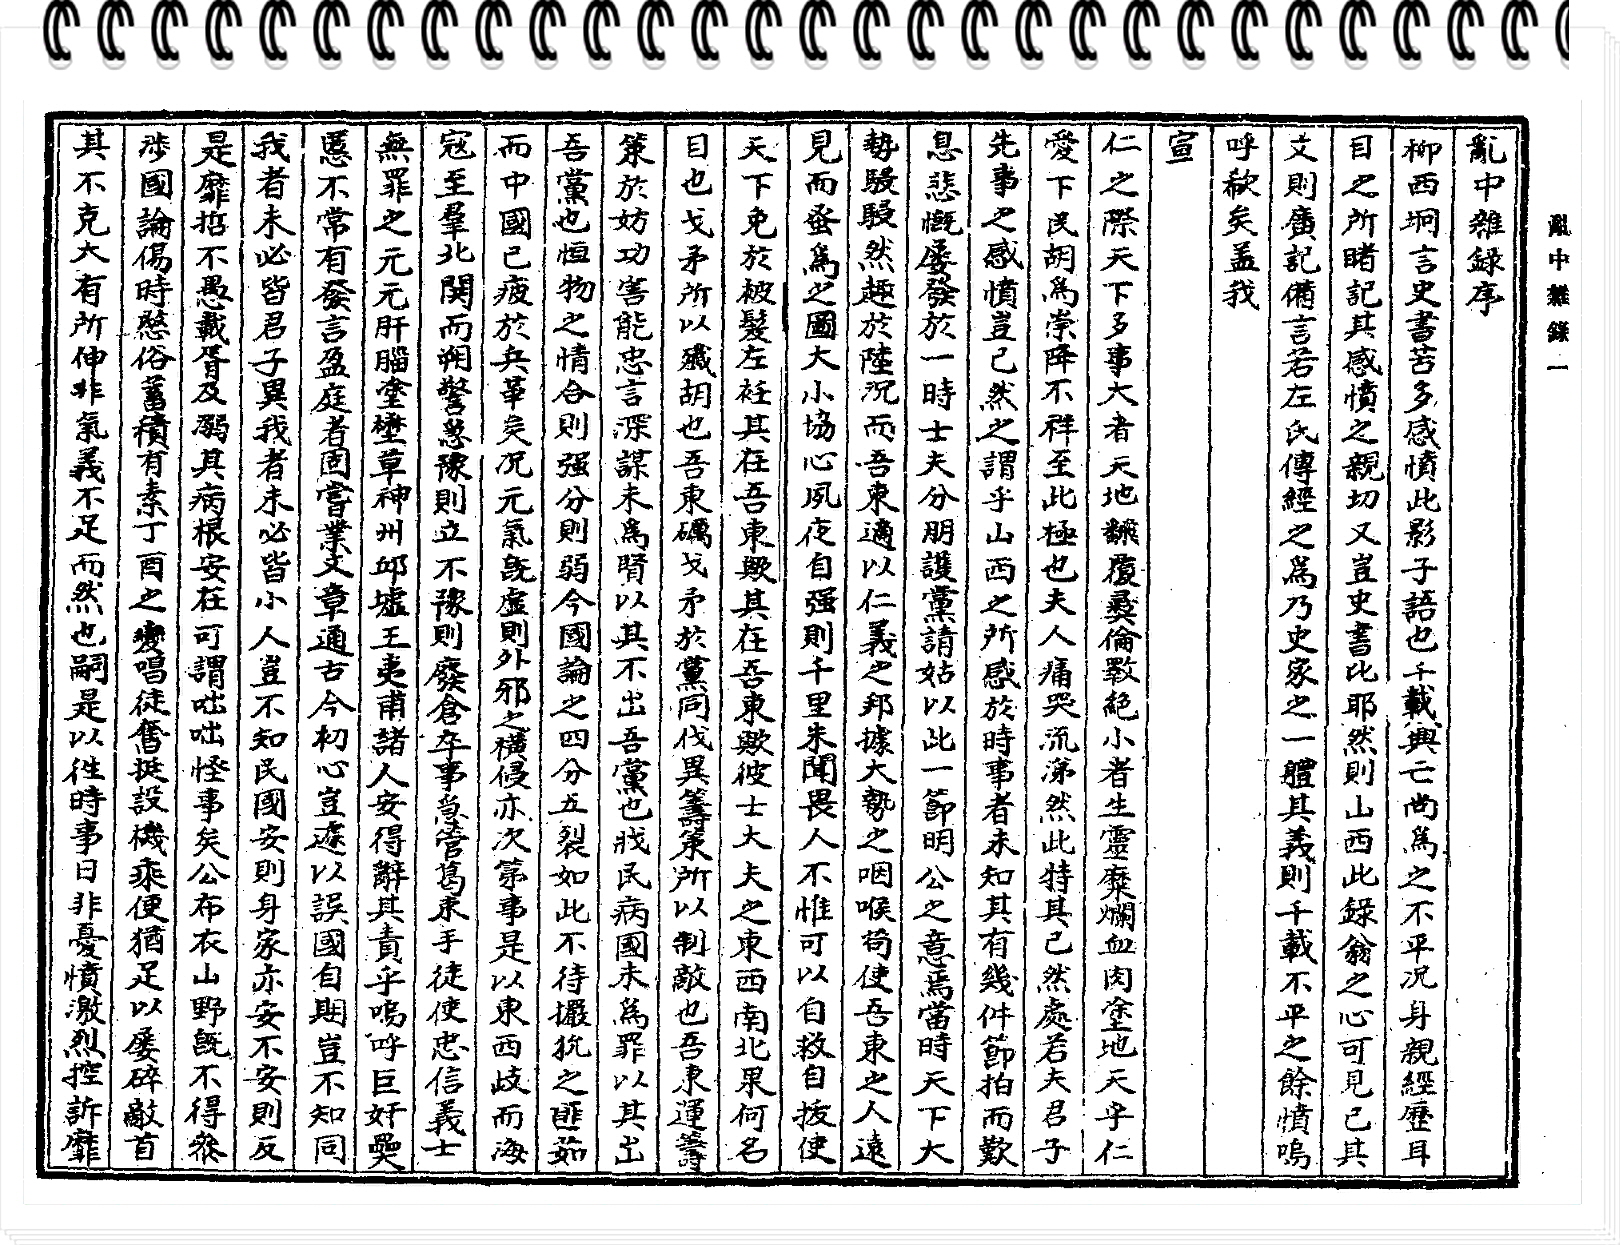 亂中雜錄 一
亂中雜錄序
柳西坰言史書苦多感憤此影子語也千載興亡尚爲之不平况身親經歷耳
目之所睹記其感憤之親切又豈史書比耶然則山西此錄翁之心可見已其
文則廣記備言若左氏傳經之爲乃史家之一軆其義則千載不平之餘憤嗚
呼欷矣盖我
宣
仁之際天下多事大者天地飜覆彜倫斁絕小者生靈糜爛血肉塗地天乎仁
愛下民胡爲崇降不祥至此極也夫人痛哭流涕然此特其已然處若夫君子
先事之感憤豈已然之謂乎山西之所感於時事者未知其有幾件節拍而歎
息悲慨屡發於一時士夫分朋護黨請姑以此一節明公之意焉當時天下大
勢駸駸然趣於陸沉而吾東適以仁義之邦據大勢之咽喉苟使吾東之人遠
見而蚤爲之圖大小協心夙夜自强則千里朱聞畏人不惟可以自救自拔使
天下免於被髮左衽其在吾東歟其在吾東歟彼士大夫之東西南北果何名
目也戈矛所以殲胡也吾東礪戈矛於黨同伐異籌策所以制敵也吾東運籌
策於妨功害能忠言深謀未爲賢以其不出吾黨也戕民病國未爲罪以其出
吾黨也恒物之情合則强分則弱今國論之四分五裂如此不待攦抗之匪茹
而中國已疲於兵革矣况元氣旣虛則外邪之橫侵亦次第事是以東西歧而海
寇至羣北閧而朔警急豫則立不豫則廢倉卒事急管葛束手徒使忠信義士
無罪之元元肝腦塗塗草神州邱墟王夷甫諸人安得辭其責乎嗚呼巨奸奰
慝不常有發言盈庭者固嘗業文章通古今初心豈遽以誤國自期豈不知同
我者未必皆君子異我者未必皆小人豈不知民國安則身家亦安不安則反
是靡哲不愚載胥及溺其病根安在可謂咄咄怪事矣公布衣山野旣不得參
渉國論傷時愍俗蓄積有素丁酉之變唱徒奮挺設機乘便猶足以屡碎敵首
其不克大有所伸非氣義不足而然也嗣是以徃時事日非憂憤激烈控訴靡